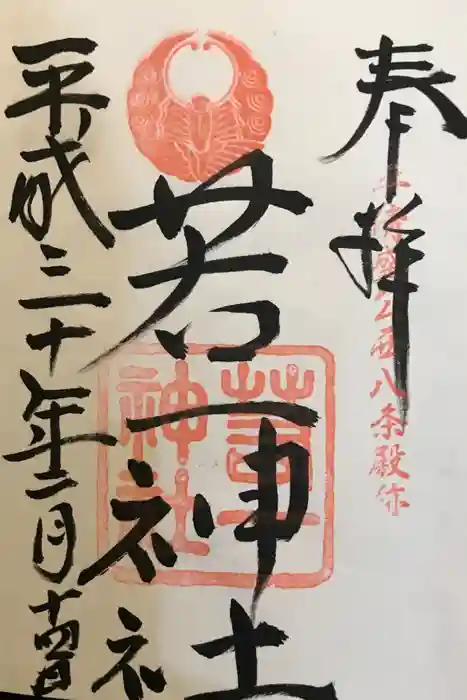 奉拝
平清盛公西八条殿跡
若一神社
若一神社
平成三十年二月十四日